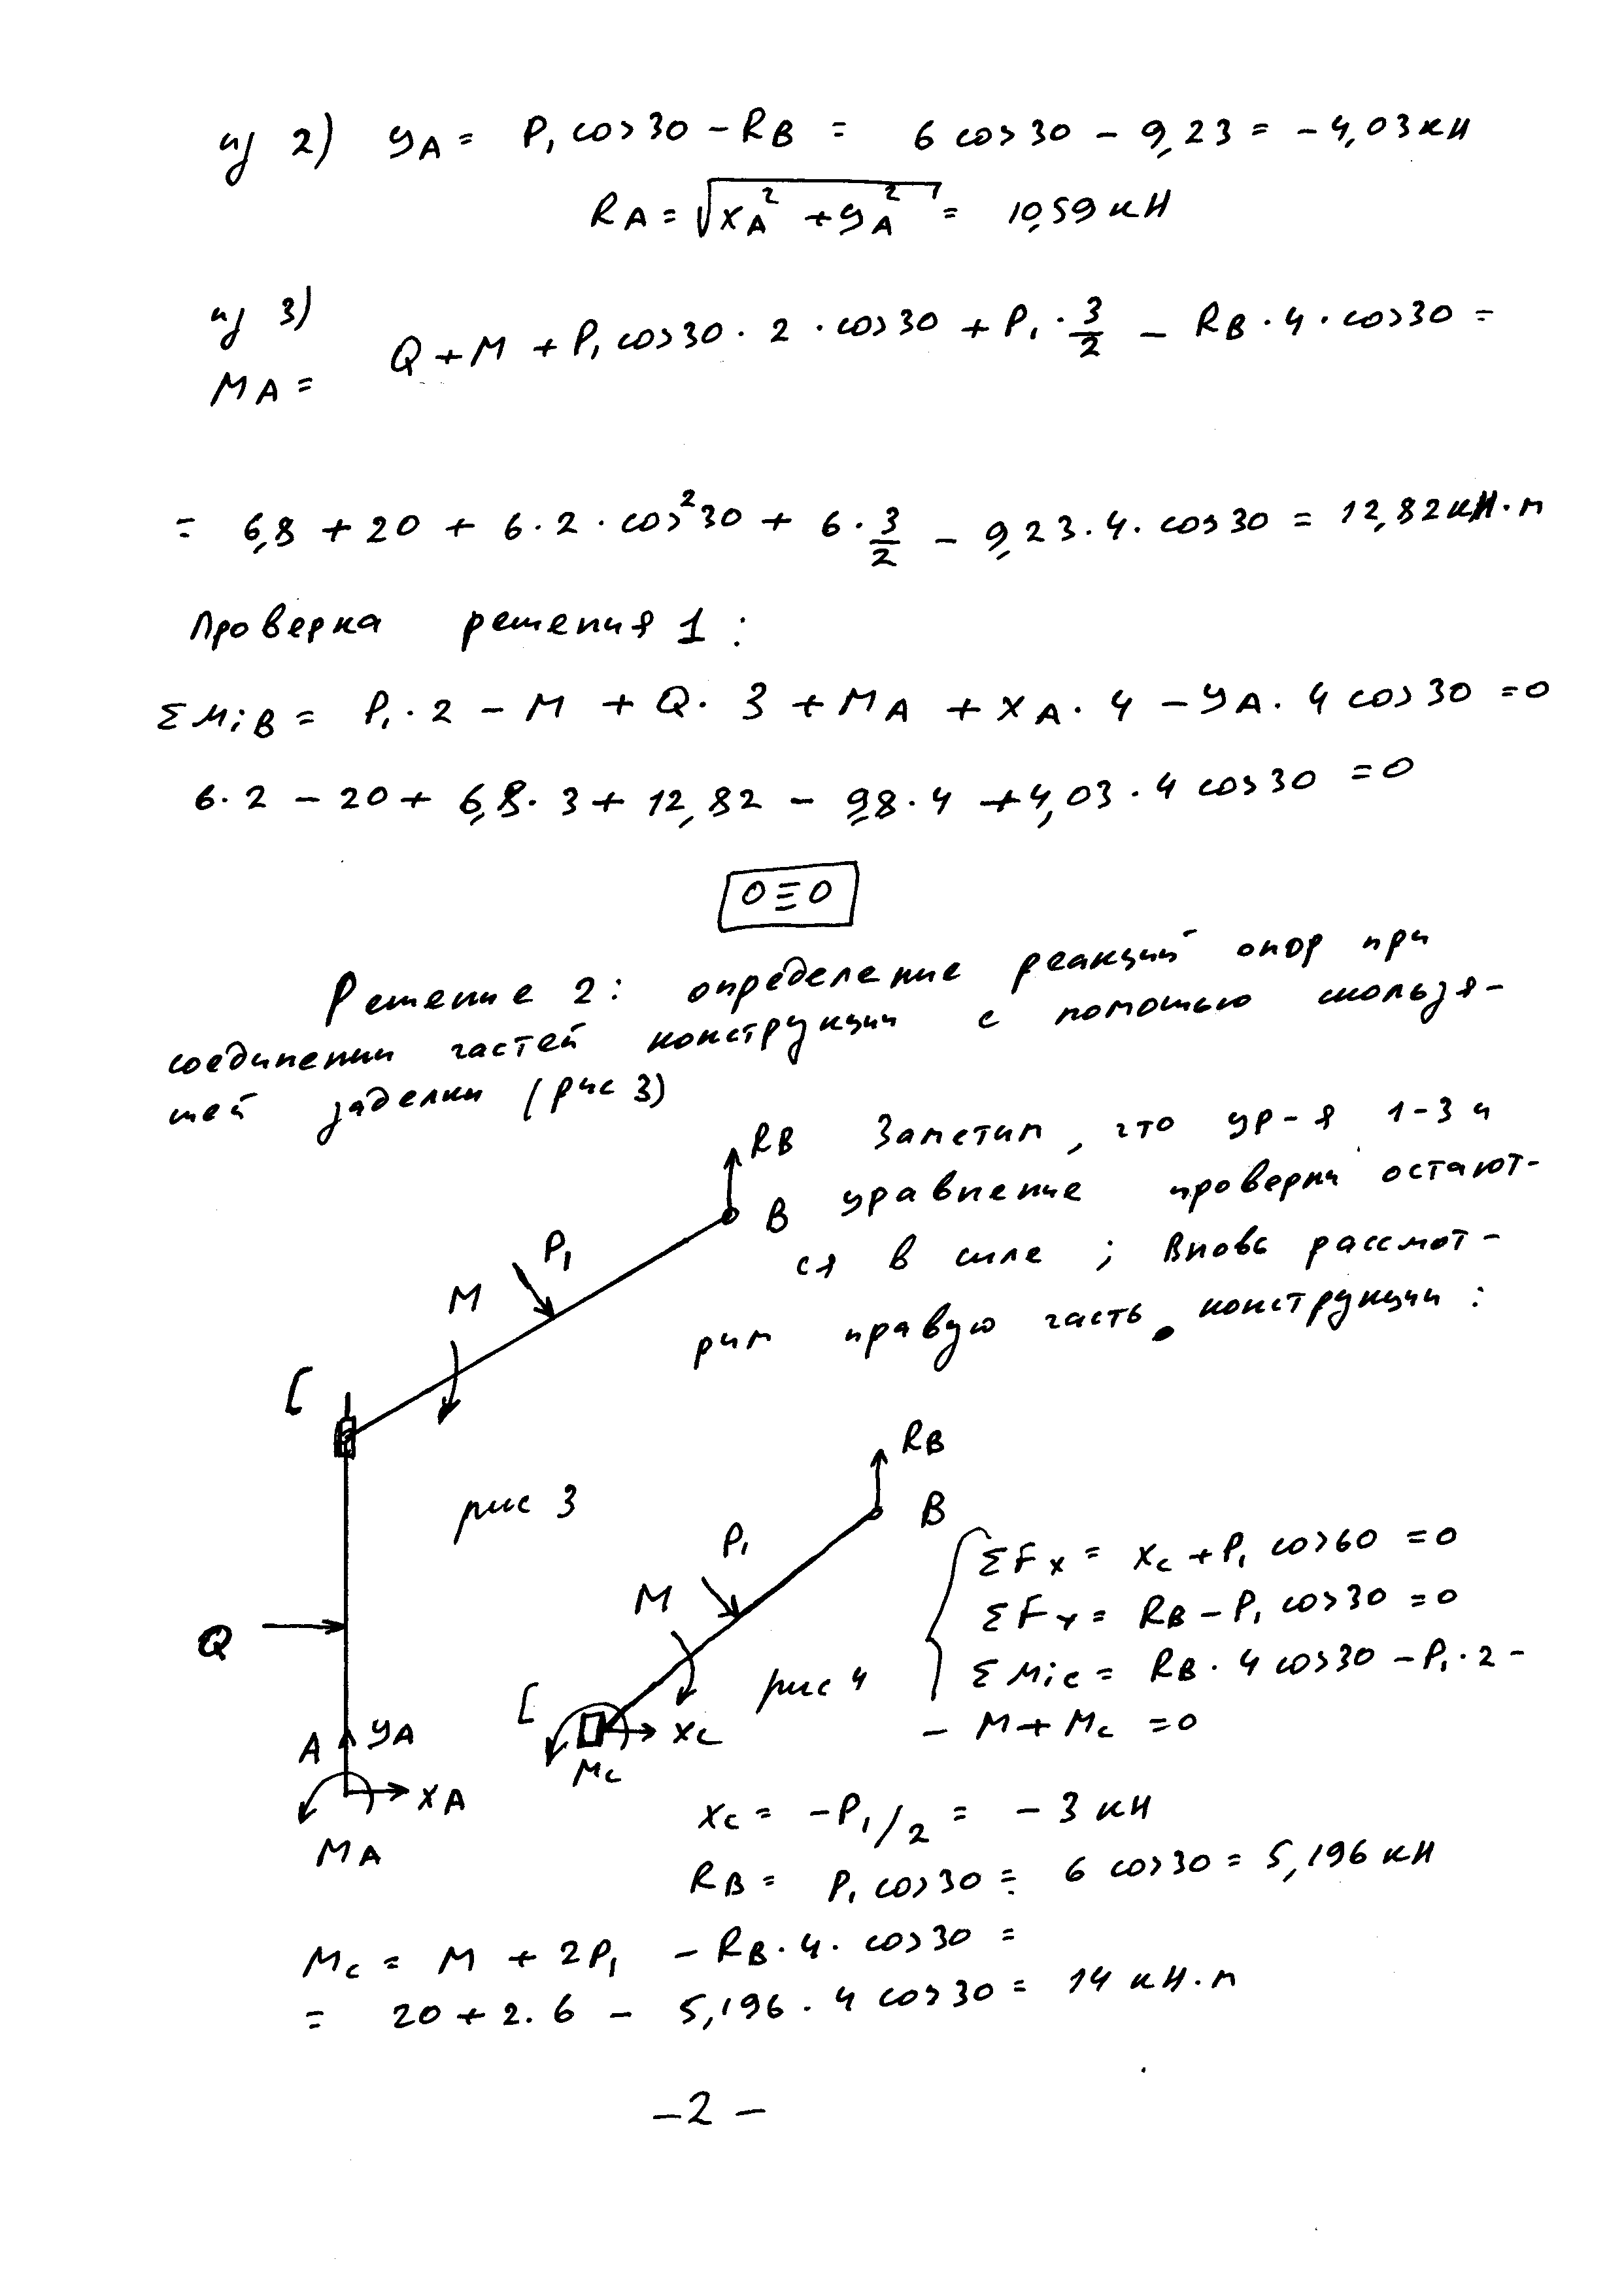 из 2) YA = P₁ cos30 - RB = 6 cos30 - 9,23 = -4,03 кН
RA = √(XA² + YA²) = 10,59 кН
из 3)
MA = Q + M + P₁ cos30 · 2 · cos30 + P₁ · 3/2 - RB · 4 · cos30 =
= 6,8 + 20 + 6 · 2 · cos²30 + 6 · 3/2 - 9,23 · 4 · cos30 = 12,82 кН·м
Проверка решения 1:
ΣMiB = P₁ · 2 - M + Q · 3 + MA + XA · 4 - YA · 4 cos30 = 0
6 · 2 - 20 + 6,8 · 3 + 12,82 - 9,8 · 4 + 4,03 · 4 cos30 = 0
0 ≡ 0
Решение 2: определение реакций опор при
соединении частей конструкции с помощью скользя-
щей заделки (рис 3)
RB Заметим, что ур-я 1-3 и
B уравнение проверки остают-
ся в силе; Вновь рассмот-
рим правую часть конструкции:
P₁
M
C
рис 3
Q
A YA
XA
MA
RB
B
P₁
M
C
рис 4
XC
MC
ΣFx = Xc + P₁ cos60 = 0
ΣFy = RB - P₁ cos30 = 0
ΣMic = RB · 4 cos30 - P₁ · 2 -
- M + Mc = 0
Xc = -P₁/2 = -3 кН
RB = P₁ cos30 = 6 cos30 = 5,196 кН
Mc = M + 2P₁ - RB · 4 · cos30 =
= 20 + 2 · 6 - 5,196 · 4 cos30 = 14 кН·м
-2-